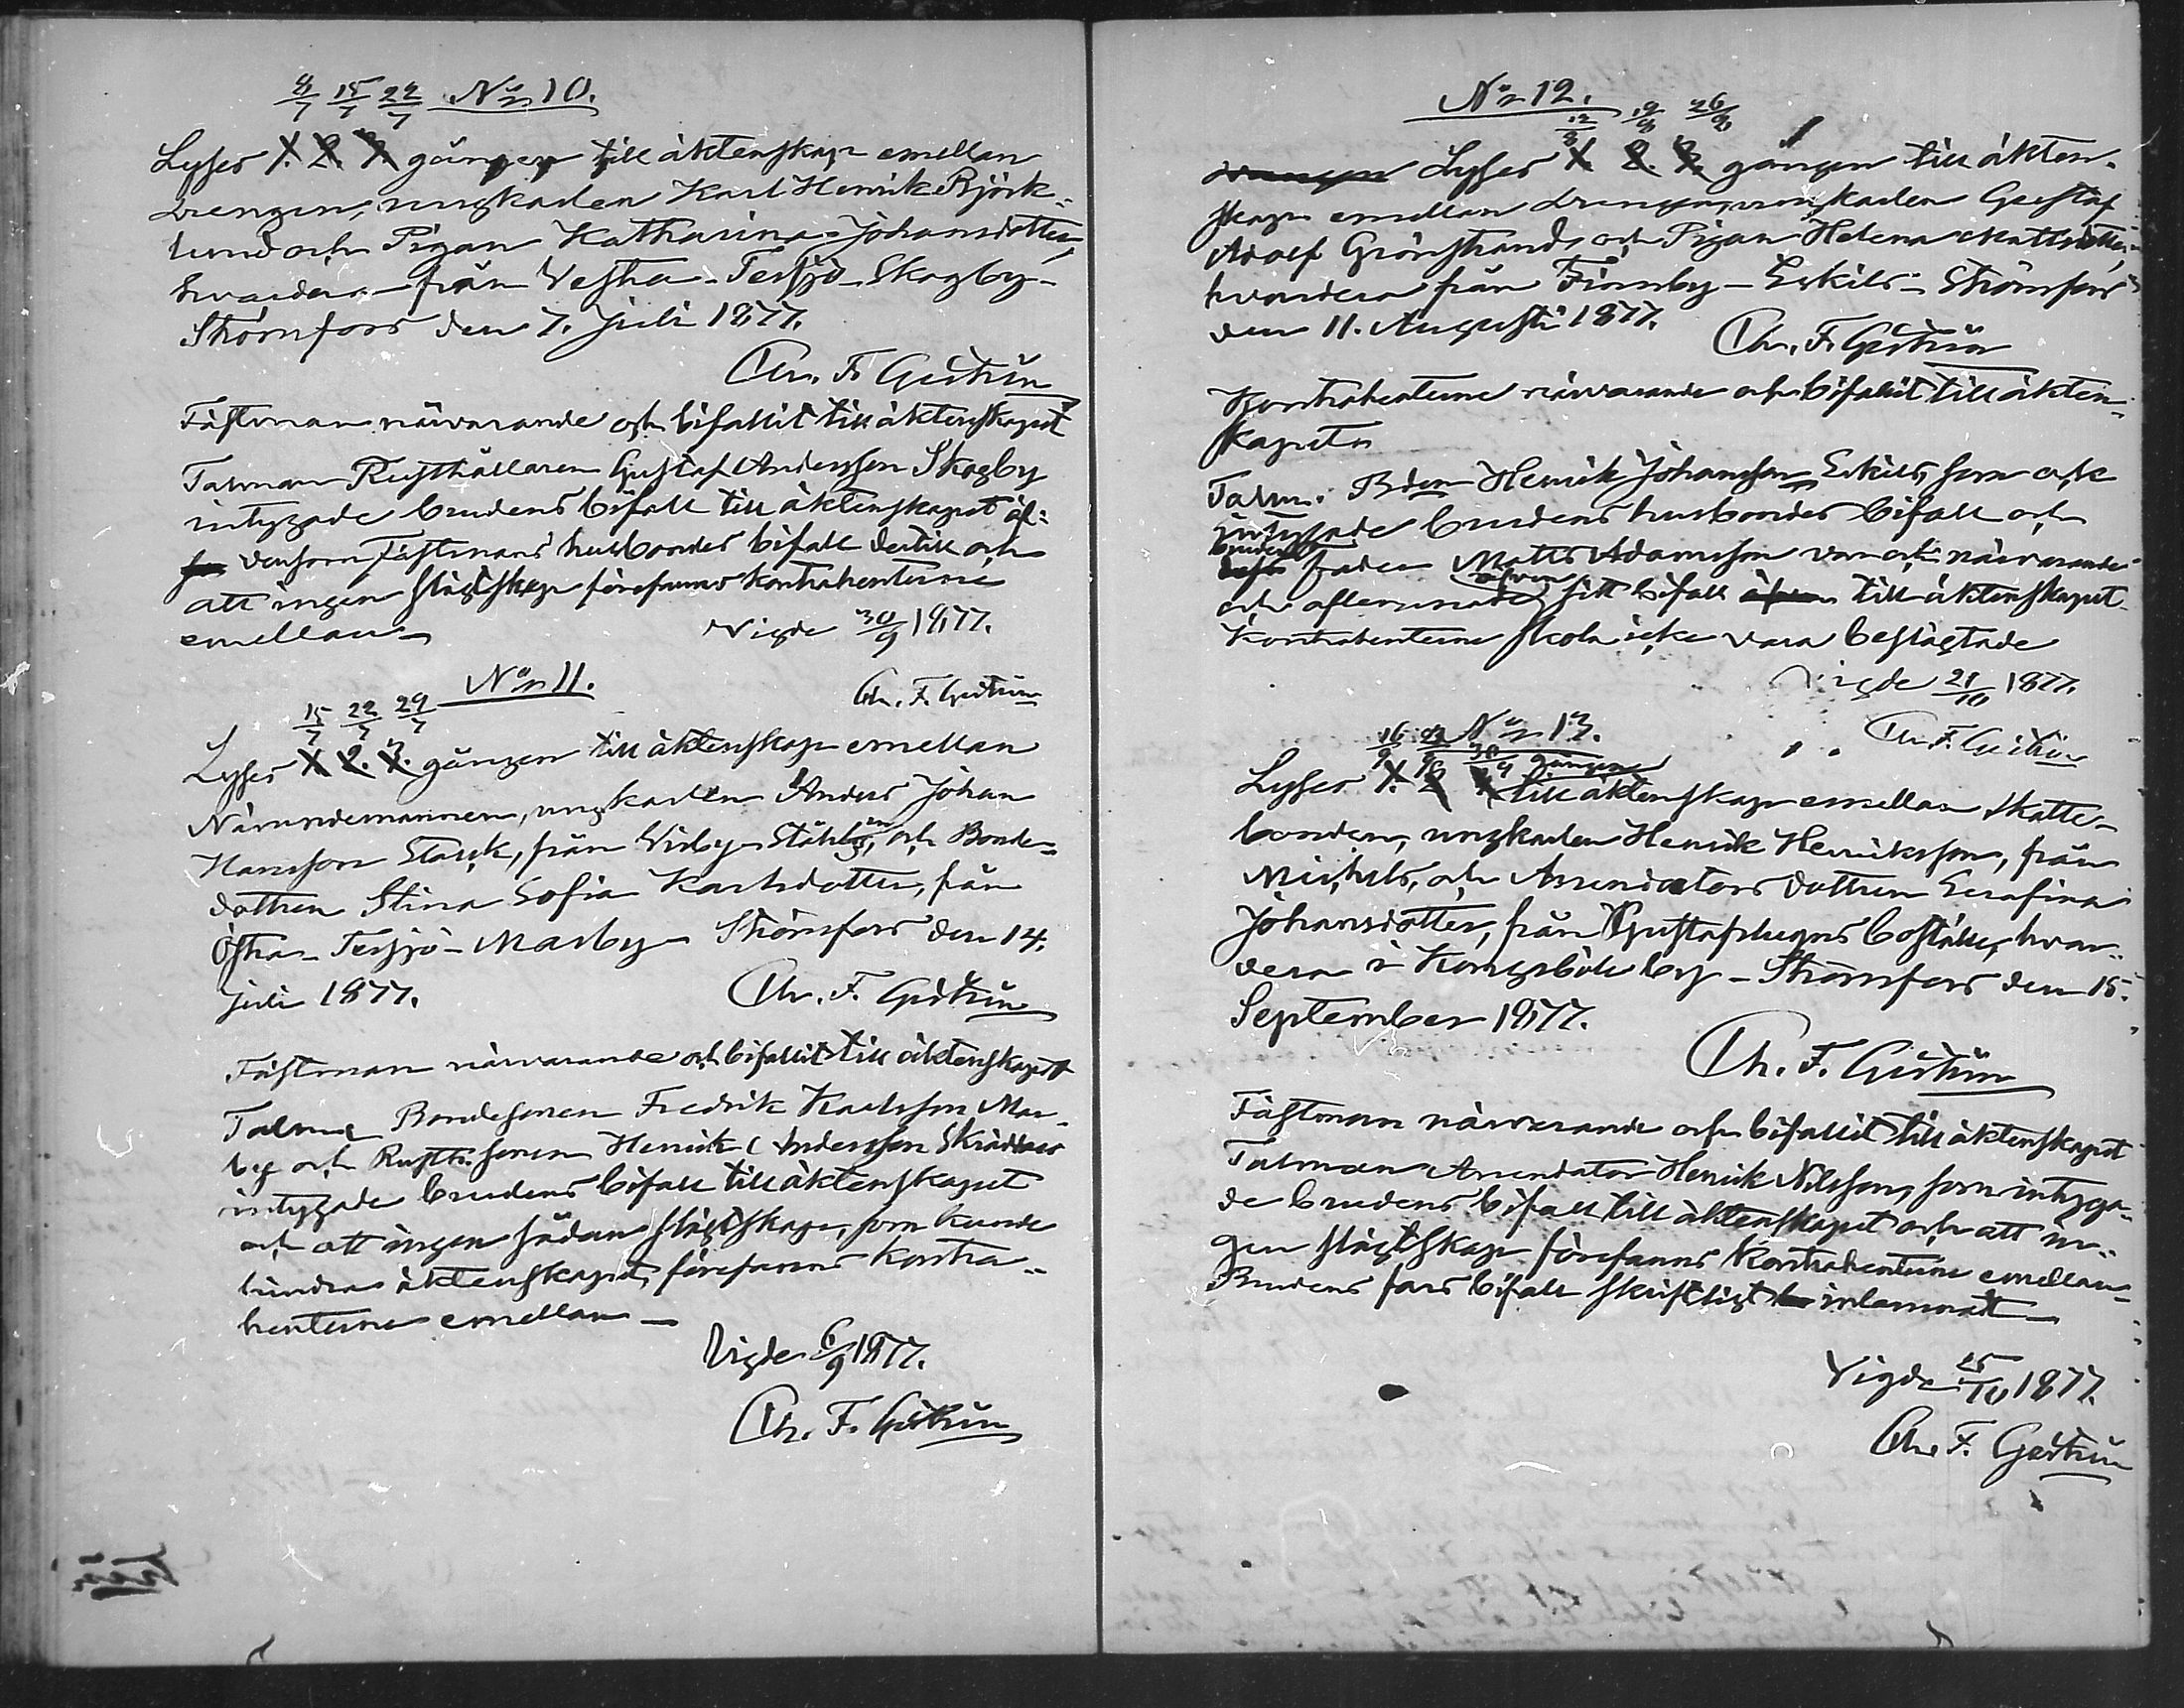 8/7 15/7 22/7 No 10.
Lyses 1. 2. 3. gången till äktenskap emellan
drengen, ungkarlen Karl Henrik Björk-
lund och Pigan Katharina Johansdotter,
hvardera från Vestra-Tessjö-Skogby-
Strömfors den 7. Juli 1877.
Chr. F. Geitlin
Fästman närvarande och bifallit till äktenskapet
Talman Rusthållaren Gustaf Andersson Skogby
intygade brudens bifall till äktenskapet äf-
vensom fästmans husbondes bifall dertill och
att ingen slägtskap förefanns kontrahenterne
emellan
Vigde 30/9 1877.
Chr. F. Geitlin
No 11.
15/7 22/7 29/7
Lyses 1. 2. 3. gången till äktenskap emellan
Nämndemannen, ungkarlen Anders Johan
Hansson Stark, från Virby-Ståhls, och Bonde-
dottren Stina Sofia Karlsdotter, från
Östra-Tessjö-Marby-Strömfors den 14.
Juli 1877.
Chr. F. Geitlin
Fästman närvarande och bifallit till äktenskapet
Talman Bondesonen Fredrik Karlsson Mar-
by och Rusth. sonen Henrik Andersson Skräddars
intygade brudens bifall till äktenskapet
och att ingen sådan slägtskap, som kunde
hindra äktenskapet, förefanns kontra-
henterne emellan
Vigde 6/9 1877.
Chr. F. Geitlin
No 12.
12/8 19/8 26/8
Lyses 1. 2. 3. gången till äkten-
skap emellan drengen, ungkarlen Gustaf
Adolf Grönstrand, och Pigan Helena Mattsdotter,
hvardera från Finnby-Eskils-Strömfors
den 11. Augusti 1877.
Chr. F. Geitlin
Kontrahenterne närvarande och bifallit till äkten-
skapet
Talm. Bden Henrik Johansson Eskils, som ock
intygade brudens husbondes bifall och
brudens fader Matts Adamsson var ock närvarande
och aflemnade äfven sitt bifall till äktenskapet
Kontrahenterne skola icke vara beslägtade
Vigde 21/10 1877.
Chr. F. Geitlin
No 13.
16/9 23/9 30/9 gången
Lyses 1. 2. 3. till äktenskap emellan Skatte-
bonden, ungkarlen Henrik Henriksson, från
Michels, och Arrendators dottren Serafina
Johansdotter, från Gustaflugns boställe, hvar-
dera i Kungsböle by-Strömfors den 15.
September 1877.
Chr. F. Geitlin
Fästman närvarande och bifallit till äktenskapet
Talman Arrendator Henrik Nilsson, som intyga-
de brudens bifall till äktenskapet och att in-
gen slägtskap förefanns kontrahenterne emellan-
Brudens fars bifall skriftligt inlemnadt
Vigde 25/10 1877.
Chr. F. Geitlin